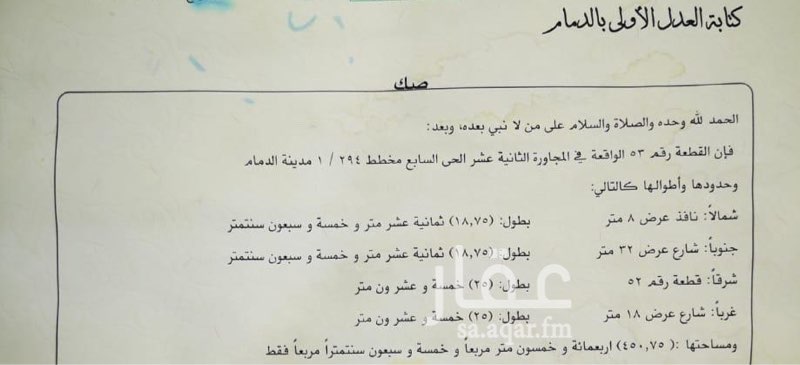 كتابة العدل الأولى بالدمام
صك
الحمد لله وحده والصلاة والسلام على من لا نبي بعده، وبعد:
فإن القطعة رقم ٥٣ الواقعة في المجاورة الثانية عشر الحى السابع مخطط ٢٩٤ / ١ مدينة الدمام
وحدودها وأطوالها كالتالي:
شمالاً: نافذ عرض ٨ متر بطول: (١٨,٧٥) ثمانية عشر متر و خمسة و سبعون سنتمتر
جنوباً: شارع عرض ٣٢ متر بطول: (١٨,٧٥) ثمانية عشر متر و خمسة و سبعون سنتمتر
شرقاً: قطعة رقم ٥٢ بطول: (٢٥) خمسة و عشر ون متر
غرباً: شارع عرض ١٨ متر بطول: (٢٥) خمسة و عشر ون متر
ومساحتها :( ٤٥٠,٧٥) اربعمائة و خمسون متر مربعاً و خمسة و سبعون سنتمتراً مربعاً فقط
عقار
sa.aqar.fm